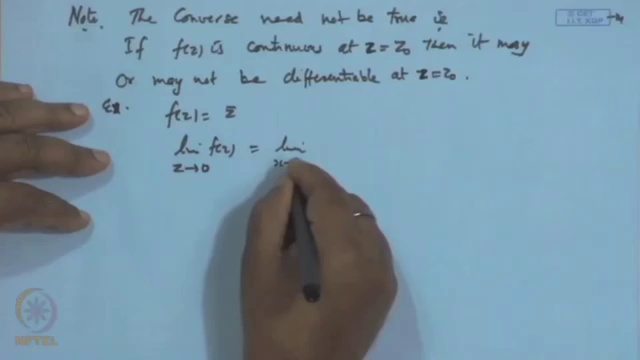 Note. The Converse need not be true is
If f(z) is continuous at z=z₀ then it may
Or may not be differentiable at z=z₀.
Ex. f(z) = z̄
lim f(z) = lim
z→0
© CET
I.I.T. KGP
NPTEL